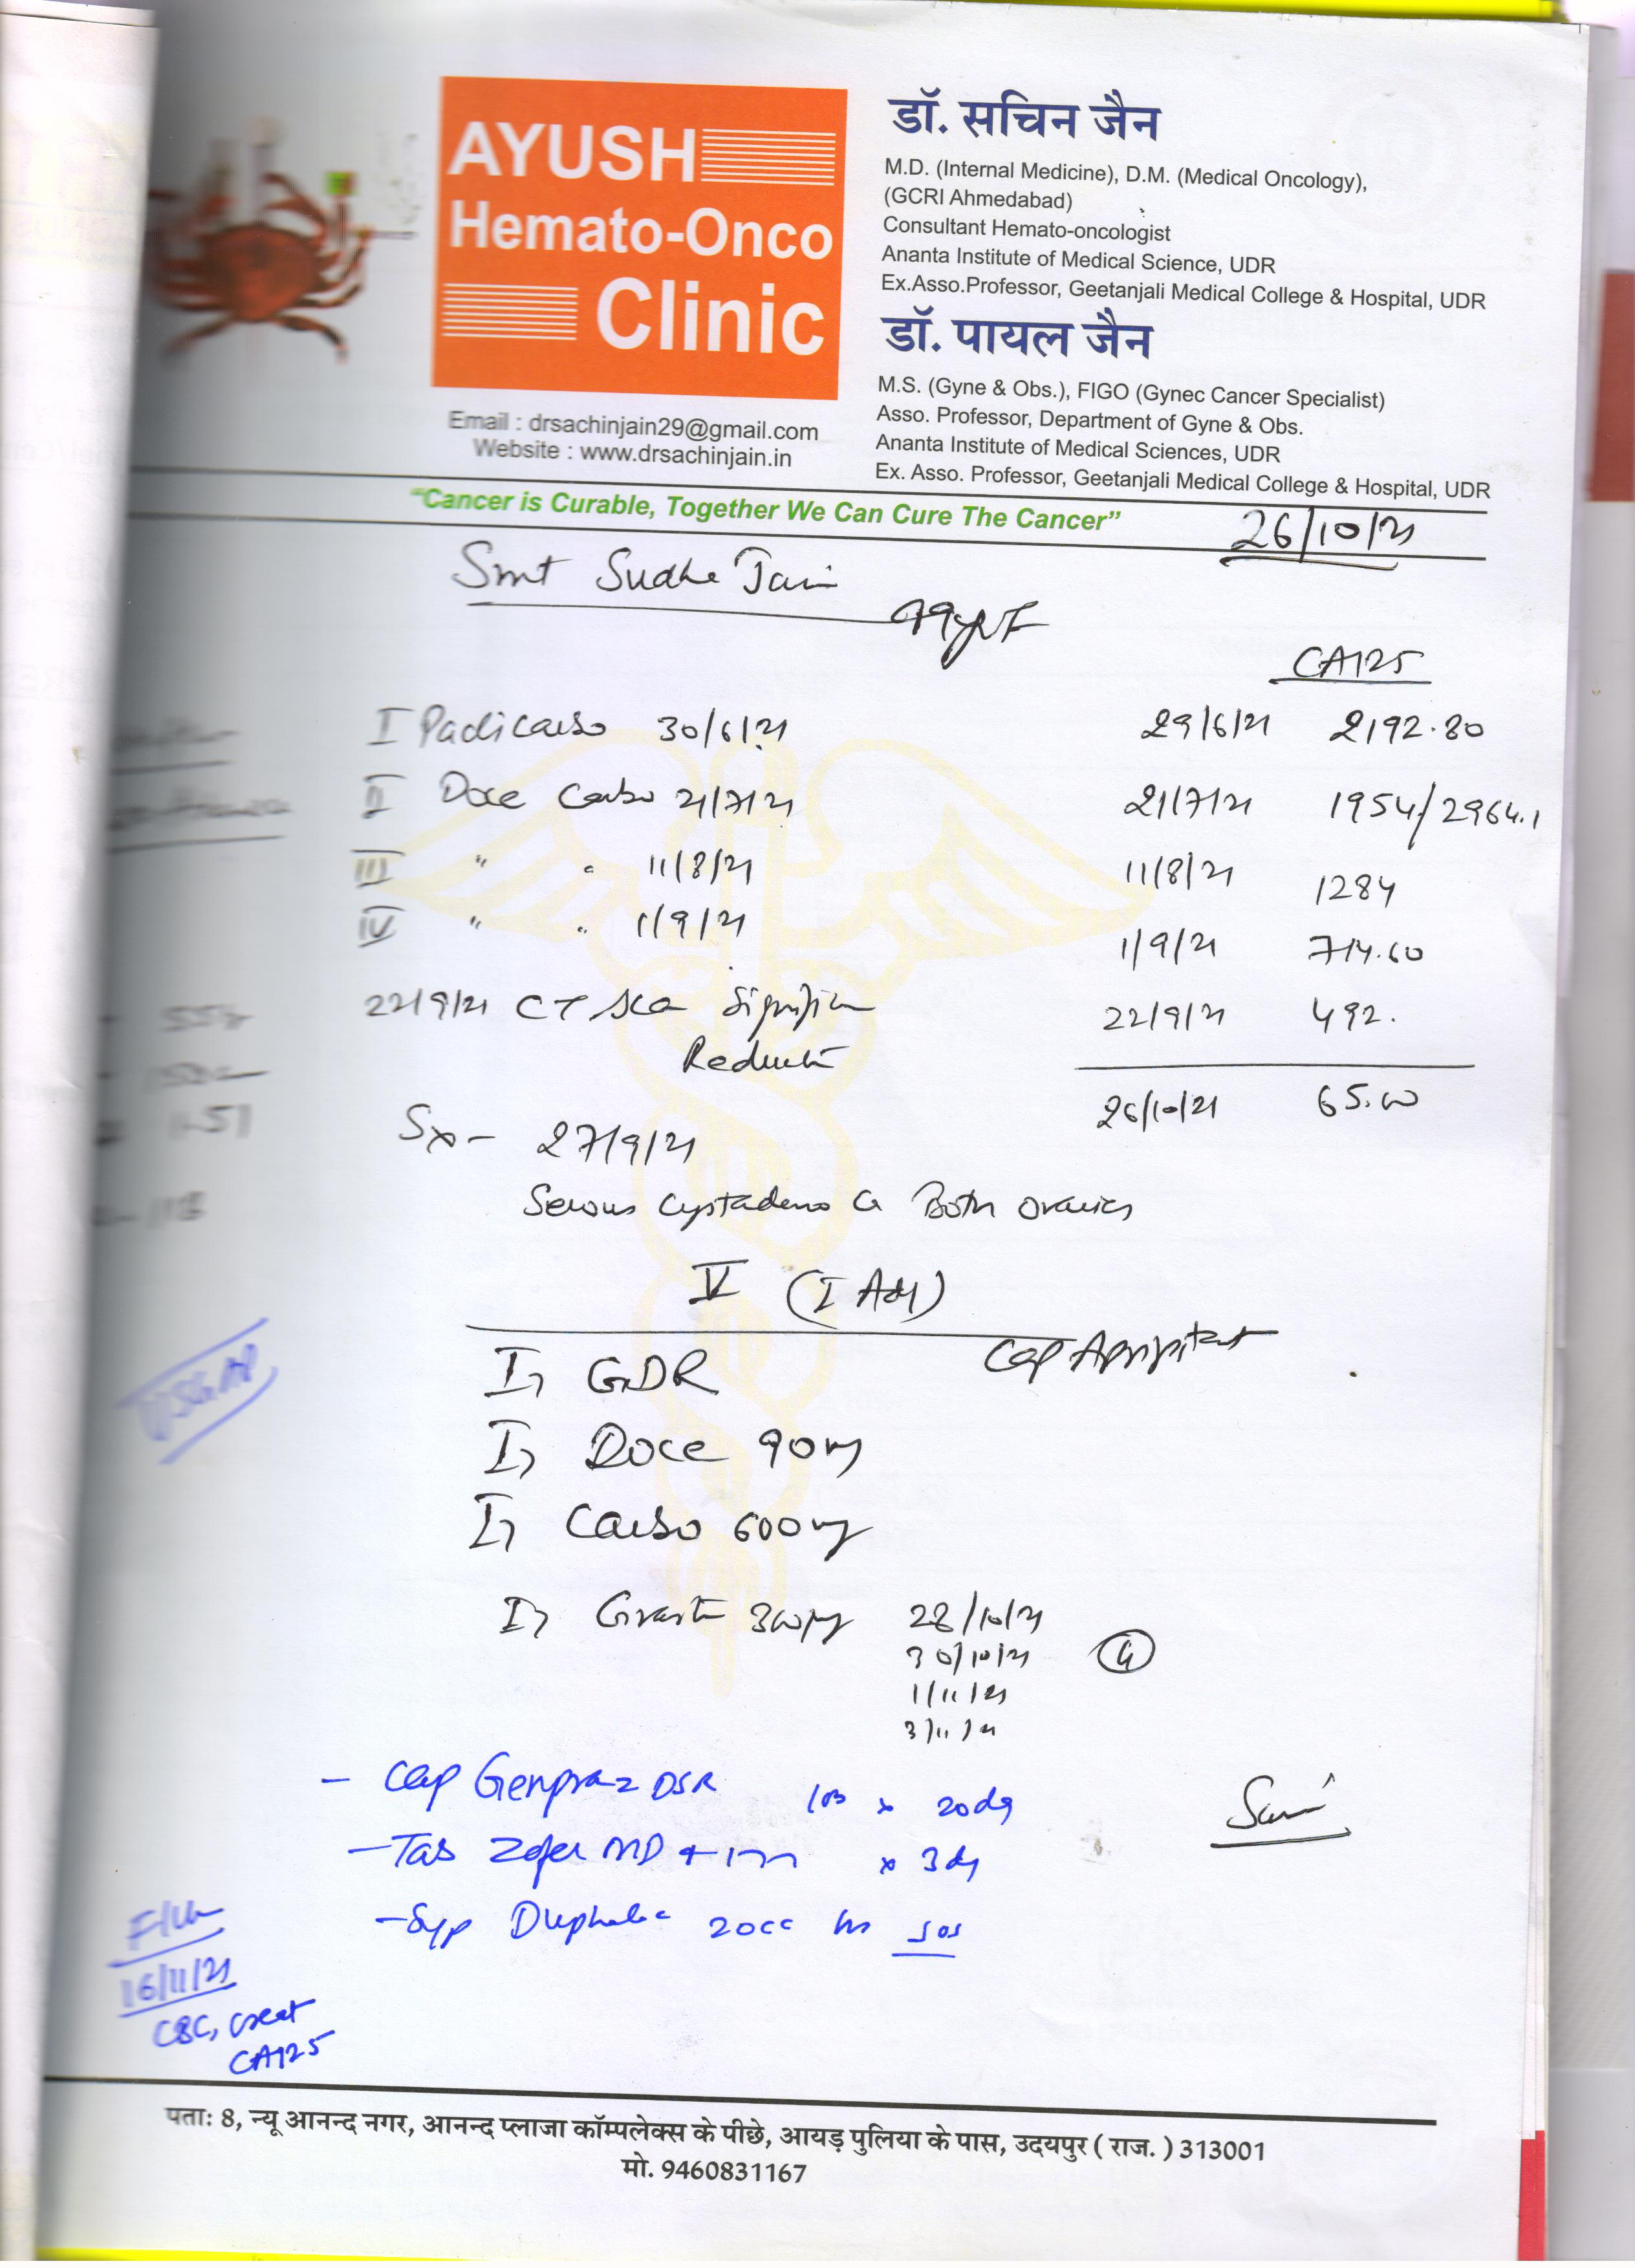 AYUSH
Hemato-Onco
Clinic
Email : drsachinjain29@gmail.com
Website : www.drsachinjain.in
डॉ. सचिन जैन
M.D. (Internal Medicine), D.M. (Medical Oncology),
(GCRI Ahmedabad)
Consultant Hemato-oncologist
Ananta Institute of Medical Science, UDR
Ex.Asso.Professor, Geetanjali Medical College & Hospital, UDR
डॉ. पायल जैन
M.S. (Gyne & Obs.), FIGO (Gynec Cancer Specialist)
Asso. Professor, Department of Gyne & Obs.
Ananta Institute of Medical Sciences, UDR
Ex. Asso. Professor, Geetanjali Medical College & Hospital, UDR
"Cancer is Curable, Together We Can Cure The Cancer"
26/10/21
Smt Sudha Jain
CA125
I Paclicarbo 30/6/21 29/6/21 2192.80
II Doce Carbo 21/7/21 21/7/21 1954/2964.1
III " " 11/8/21 11/8/21 1284
IV " " 1/9/21 1/9/21 714.60
22/9/21 CT Scan Significant 22/9/21 492.
Reduction
26/10/21 65.00
Sx - 27/9/21
Serous Cystadeno Ca Both Ovaries
V (I Adj)
Cap Aprepitant
Inj GDR
Inj Doce 90mg
Inj Carbo 600mg
Inj Grastim 300µg 28/10/21
30/10/21 (4)
1/11/21
3/11/21
- Cap Genpraz DSR x 20dy
- Tab Zofer MD x 3dy
- Syp Duphalac 20cc hs sos
USG AP
F/U
16/11/21
CBC, Creat
CA125
पता: 8, न्यू आनन्द नगर, आनन्द प्लाजा कॉम्पलेक्स के पीछे, आयड़ पुलिया के पास, उदयपुर ( राज. ) 313001
मो. 9460831167